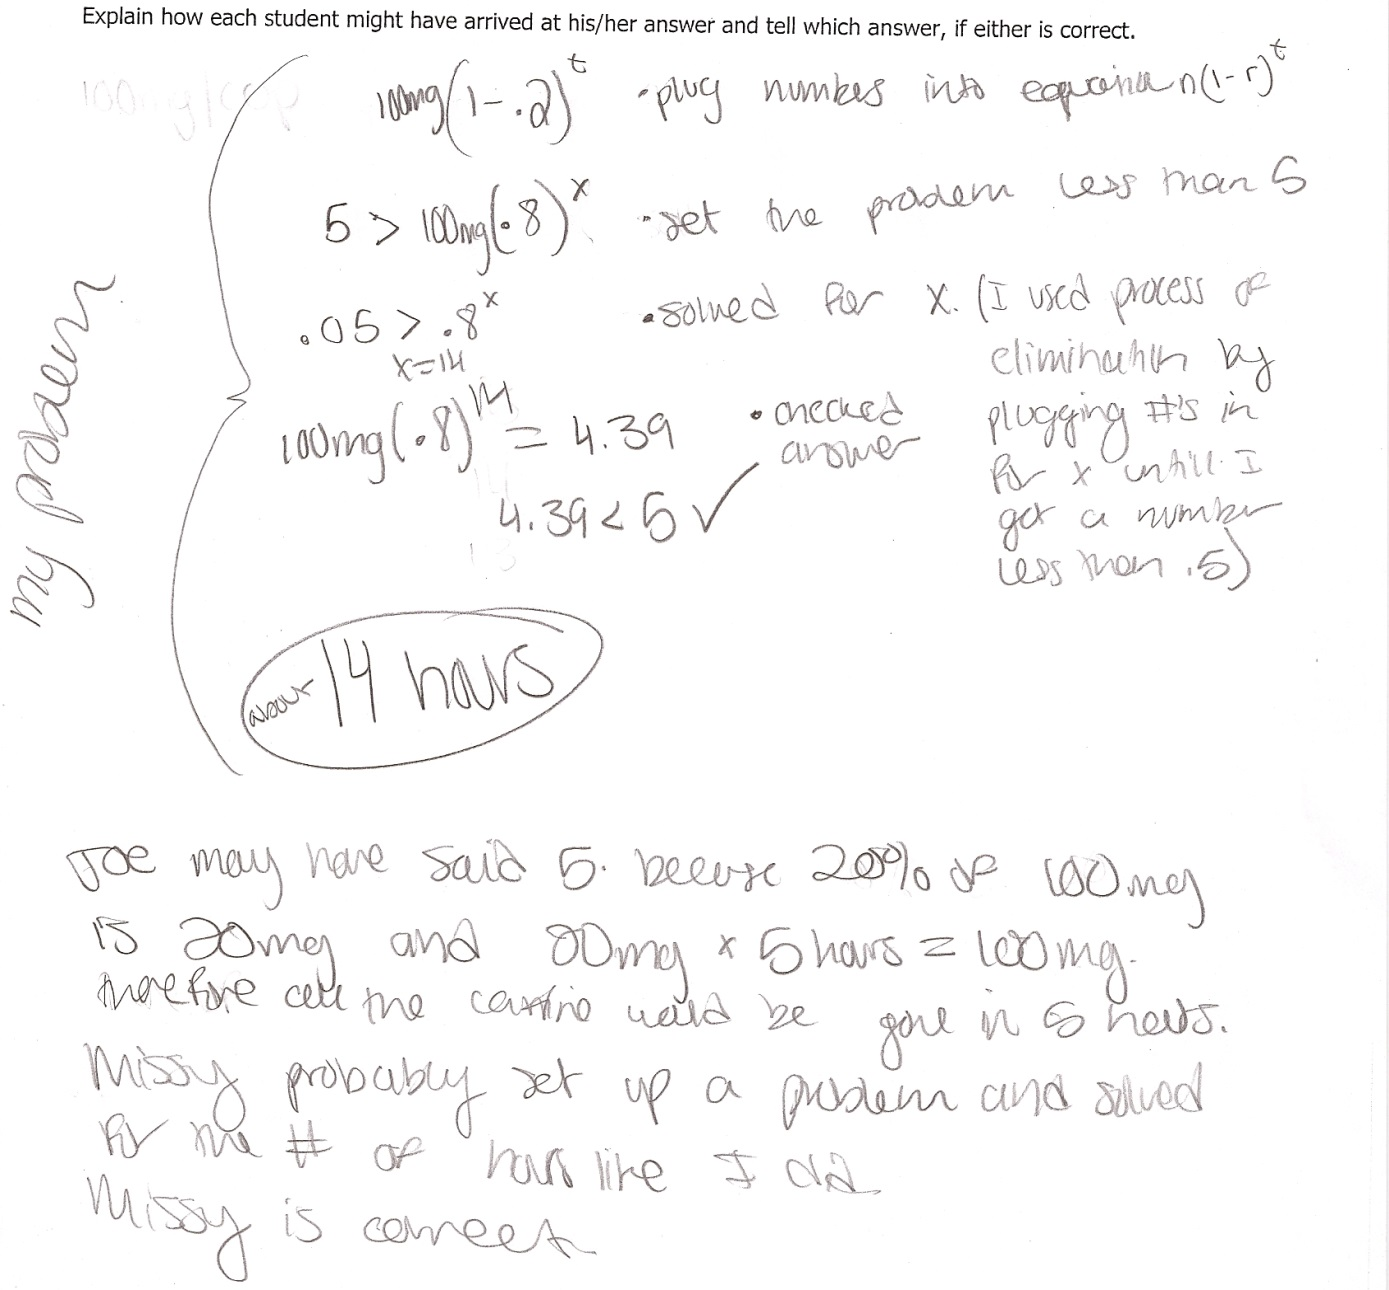 Explain how each student might have arrived at his/her answer and tell which answer, if either is correct.
100mg/cup
100mg(1-.2)^t •plug numbers into equation n(1-r)^t
5 > 100mg(.8)^x •set the problem less than 5
.05 > .8^x •solved for x. (I used process of
x=14 elimination by
100mg(.8)^14 = 4.39 •checked plugging #'s in
answer for x untill I
4.39 < 5 ✓ got a number
13 less than .5)
my problem
about 14 hours
Joe may have said 5. because 20% of 100mg
is 20mg and 20mg x 5 hours = 100mg.
therefore all the would be gone in 5 hours.
Missy probably set up a problem and solved
for the # of hours like I did
Missy is correct